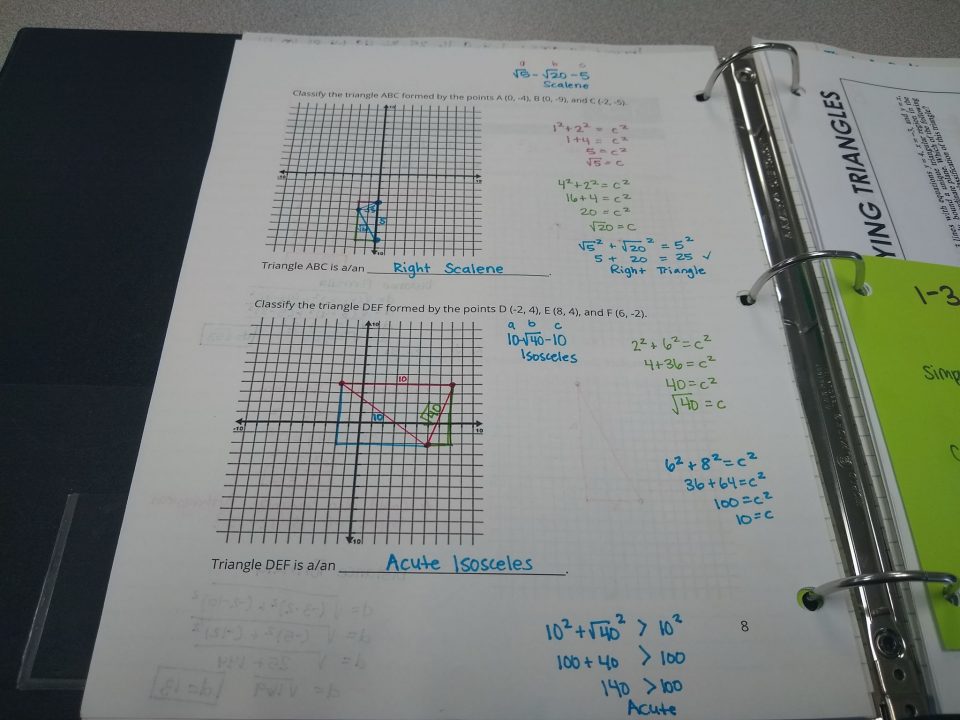 a b c
√5 - √20 - 5
Scalene
Classify the triangle ABC formed by the points A (0, -4), B (0, -9), and C (-2, -5).
1² + 2² = c²
1 + 4 = c²
5 = c²
√5 = c
4² + 2² = c²
16 + 4 = c²
20 = c²
√20 = c
√5² + √20² = 5²
5 + 20 = 25 ✓
Right Triangle
10
-10
10
-10
√5
5
√20
Triangle ABC is a/an Right Scalene.
Classify the triangle DEF formed by the points D (-2, 4), E (8, 4), and F (6, -2).
a b c
10-√40-10
Isosceles
2² + 6² = c²
4 + 36 = c²
40 = c²
√40 = c
10
10
10
√40
-10
10
-10
6² + 8² = c²
36 + 64 = c²
100 = c²
10 = c
Triangle DEF is a/an Acute Isosceles.
10² + √40² > 10²
100 + 40 > 100
140 > 100
Acute
8
YING TRIANGLES
1-3
Simp